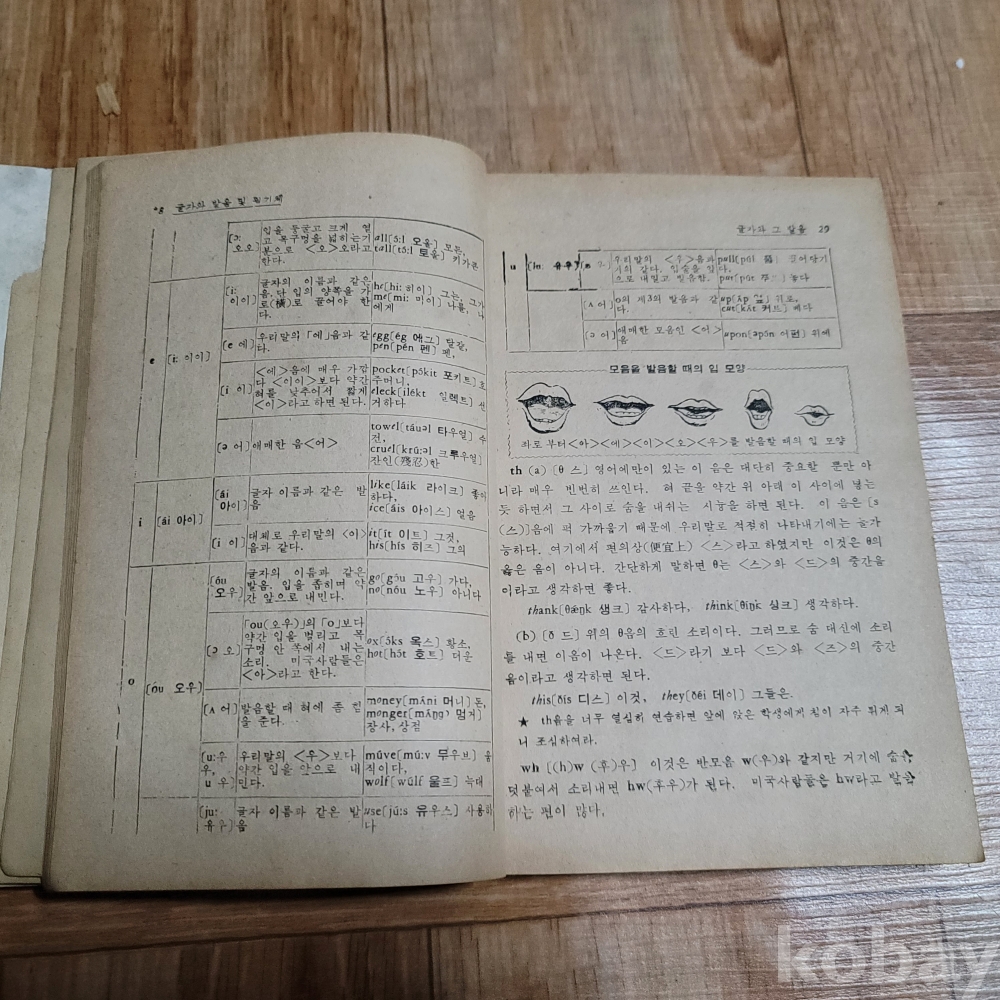 글자와 발음 및 필기체
[ɔ: 오오] 입을 둥굴고 크게 열
고 목구멍을 넓히는기
분으로 <오>오라고
한다.
all[ɔ́:l 오올] 모든,
tall[tɔ́:l 토올] 키가큰
e [i: 이이]
[i: 이이] 글자의 이름과 같은
음. 단 입의 양쪽을 가
로(橫)로 끌어야 한
다.
he[hi: 히이] 그는, 그가
me[mi: 미이] 나를, 나
에게
[e 에] 우리말의 「에」음과 같
다.
egg[ég 에그] 달걀,
pen[pén 펜] 펜,
[i 이] <에>음에 매우 가깝
다 <이이>보다 약간
혀를 낮추어서 짧게
<이>라고 하면 된다.
pocket[pɔ́kit 포키트] 호
주머니,
elect[ilékt 일렉트] 선
거하다
[ə 어] 애매한 음<어>
towel[táuəl 타우얼] 수
건,
cruel[krú:əl 크루우얼]
잔인(殘忍)한
i [ái 아이]
[ái 아이] 글자 이름과 같은 발
음
like[láik 라이크] 좋아
하다,
ice[áis 아이스] 얼음
[i 이] 대체로 우리말의 <이>
음과 같다.
it[ít 이트] 그것,
his[hís 히즈] 그의
o [óu 오우]
[óu 오우] 글자의 이름과 같은
발음. 입을 좁히며 약
간 앞으로 내민다.
go[góu 고우] 가다,
no[nóu 노우] 아니다
[ɔ 오] 「ou(오우)」의 「o」보다
약간 입을 벌리고 목
구멍 안 쪽에서 내는
소리. 미국사람들은
<아>라고 한다.
ox[ɔ́ks 옥스] 황소,
hot[hɔ́t 호트] 더운
[ʌ 어] 발음할 때 혀에 좀 힘
을 준다.
money[mʌ́ni 머니] 돈,
monger[mʌ́ŋg 멍거]
장사, 상점
[u:우우, u 우] 우리말의 <우>보다
약간 입을 앞으로 내
민다.
move[mú:v 무우브] 움
직이다,
wolf[wúlf 울프] 늑대
[ju: 유우] 글자 이름과 같은 발
음
use[jú:s 유우스] 사용하
다
글자와 그 발음 29
u
우리말의 <우>음과
같다. 입술을
으로 내밀고 발음함.
pull[púl 풀] 끌어당기다,
put[pút 푸트] 놓다
[ʌ 어] o의 제3의 발음과 같
다.
up[ʌ́p 엎] 위로,
cut[kʌ́t 커트] 베다
[ə 어] 애매한 모음인 <어>
음
upon[əpɔ́n 어펀] 위에
모음을 발음할 때의 입 모양
좌로 부터<아><에><이><오><우>를 발음할 때의 입 모양
th (a) [θ 스] 영어에만이 있는 이 음은 대단히 중요할 뿐만 아
니라 매우 빈번히 쓰인다. 혀 끝을 약간 위 아래 이 사이에 넣는
듯 하면서 그 사이로 숨을 내쉬는 시늉을 하면 된다. 이 음은[s
(스)]음에 퍽 가까웁기 때문에 우리말로 적절히 나타내기에는 불가
능하다. 여기에서 편의상(便宜上) <스>라고 하였지만 이것은 θ의
옳은 음이 아니다. 간단하게 말하면 θ는 <스>와 <드>의 중간음
이라고 생각하면 좋다.
thank[θǽŋk 생크] 감사하다, think[θíŋk 싱크] 생각하다.
(b) [ð 드] 위의 θ음의 흐린 소리이다. 그러므로 숨 대신에 소리
를 내면 이음이 나온다. <드>라기 보다 <드>와 <즈>의 중간
음이라고 생각하면 된다.
this[ðís 디스] 이것, they[ðéi 데이] 그들은.
★ th음을 너무 열심히 연습하면 앞에 앉은 학생에게 침이 자주 튀게 되
니 조심하여라.
wh [(h)w (후)우] 이것은 반모음 w(우)와 같지만 거기에 숨을
덧붙여서 소리내면 hw(후우)가 된다. 미국사람들은 hw라고 발음
하는 편이 많다.
kobay